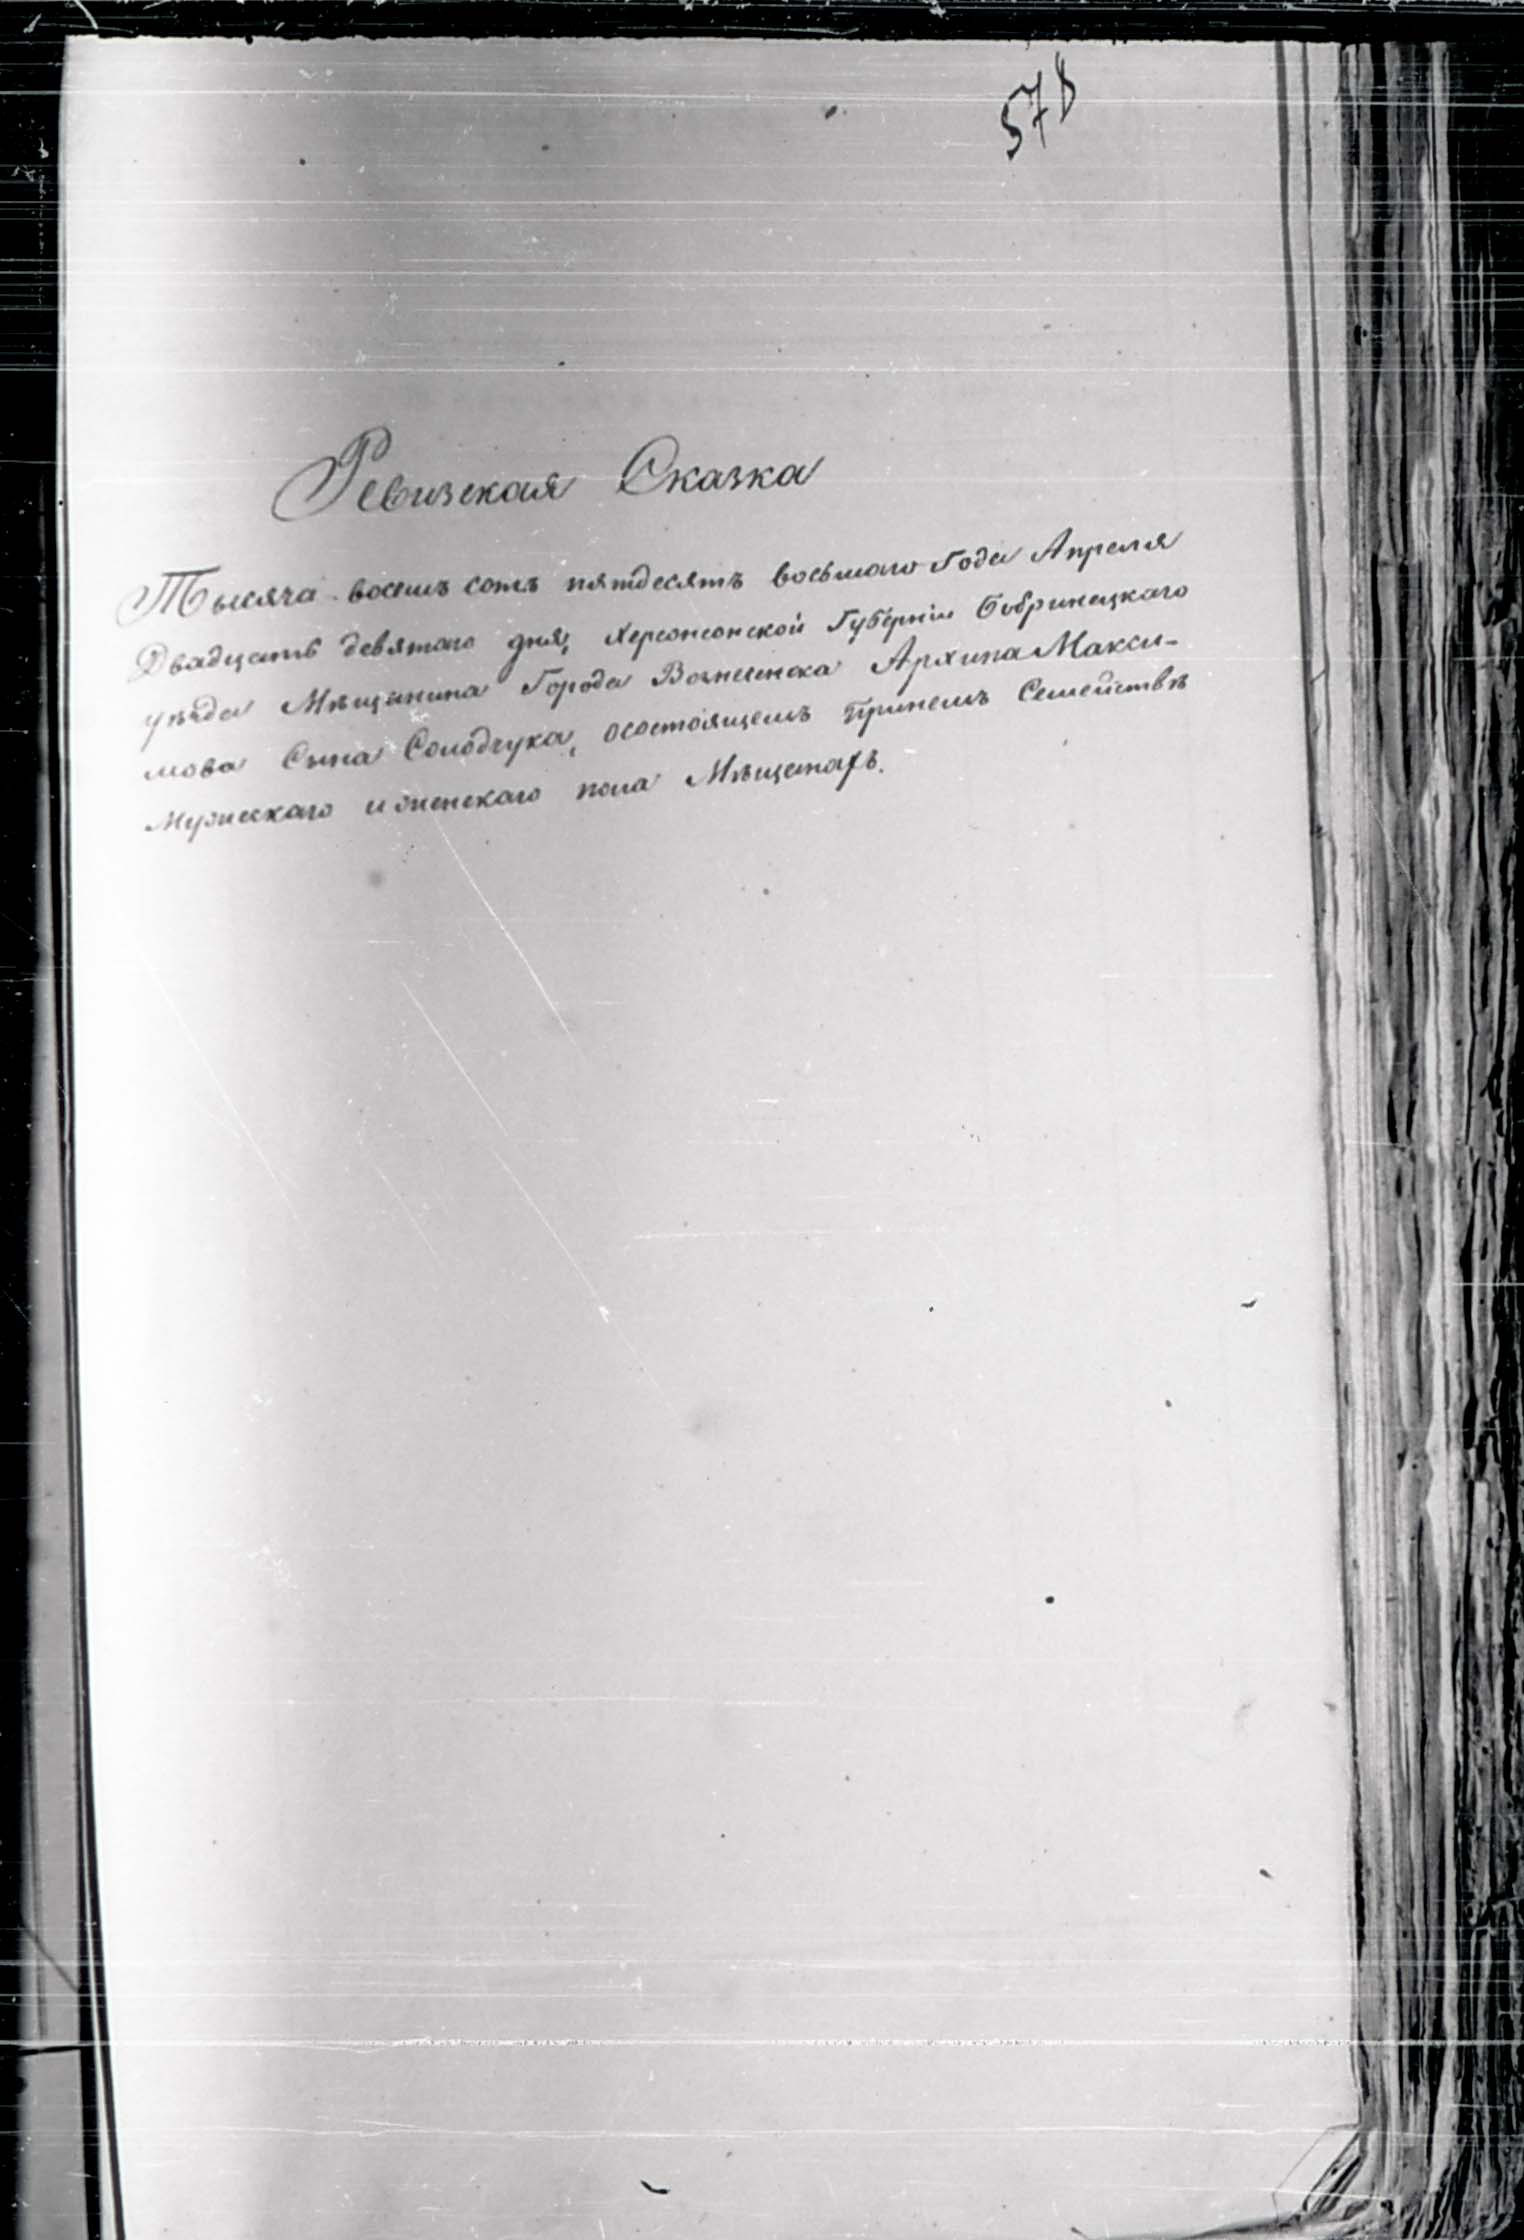 578
Ревизская Сказка
Тысяча восемь сотъ пятдесятъ восьмаго Года Апреля
Двадцать девятаго дня, Херсонской Губерніи Бобринецкаго
уѣзда Мѣщанина Города Вознесенска Архипа Макси-
мова Сына Солодчука, осостоящемъ принемъ Семействѣ
Мужескаго и женскаго пола Мѣщанахъ.